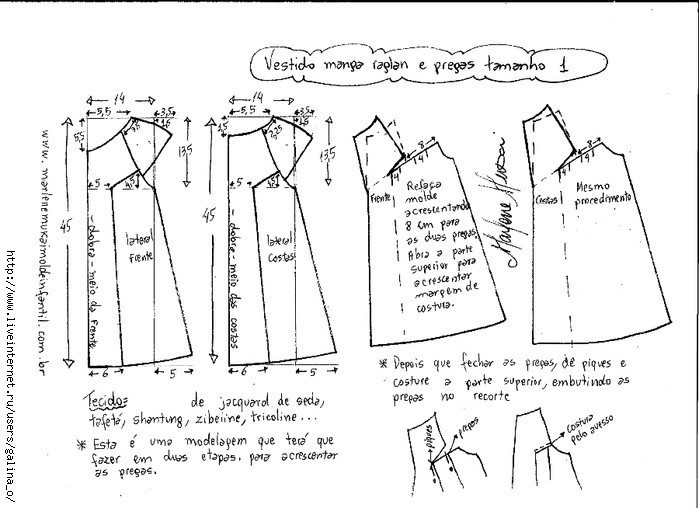 Vestido manga raglan e pregas tamanho 1
14
5,5
3,5
1,5
5,5
3,5
13,5
45
5
1,5
lateral
frente
- dobra - meio da frente
6
5
14
5,5
3,5
1,5
1,5
3,25
13,5
45
5
1,5
lateral
costas
- dobra - meio das costas
6
5
8
4
4
Frente
Refaça
molde
acrescentando
8 cm para
as duas pregas.
Abra a parte
superior para
acrescentar
margem de
costura.
Marlene Mukai
8
4
4
Costas
Mesmo
procedimento
* Depois que fechar as pregas, dê piques e
costure a parte superior, embutindo as
pregas no recorte
piques
pregas
costura
pelo avesso
Tecidos
de jacquard de seda,
tafetá, shantung, zibeline, tricoline ...
* Esta é uma modelagem que terá que
fazer em duas etapas, para acrescentar
as pregas.
www.marlenemukaimoldeinfantil.com.br
http://www.liveinternet.ru/users/galina_o/